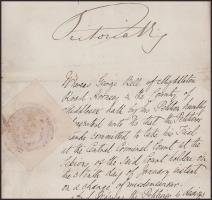 Victoria R
Whereas George Bell of Myddleton
Road Hornsey in the County of
Middlesex hath by his Petition humbly
presented unto Us that the Petitioner
stands committed to take his Trial
at the Central Criminal Court at the
Session of the said Court holden on
the day of January instant
on a charge of misdemeanor
the Petitioner is